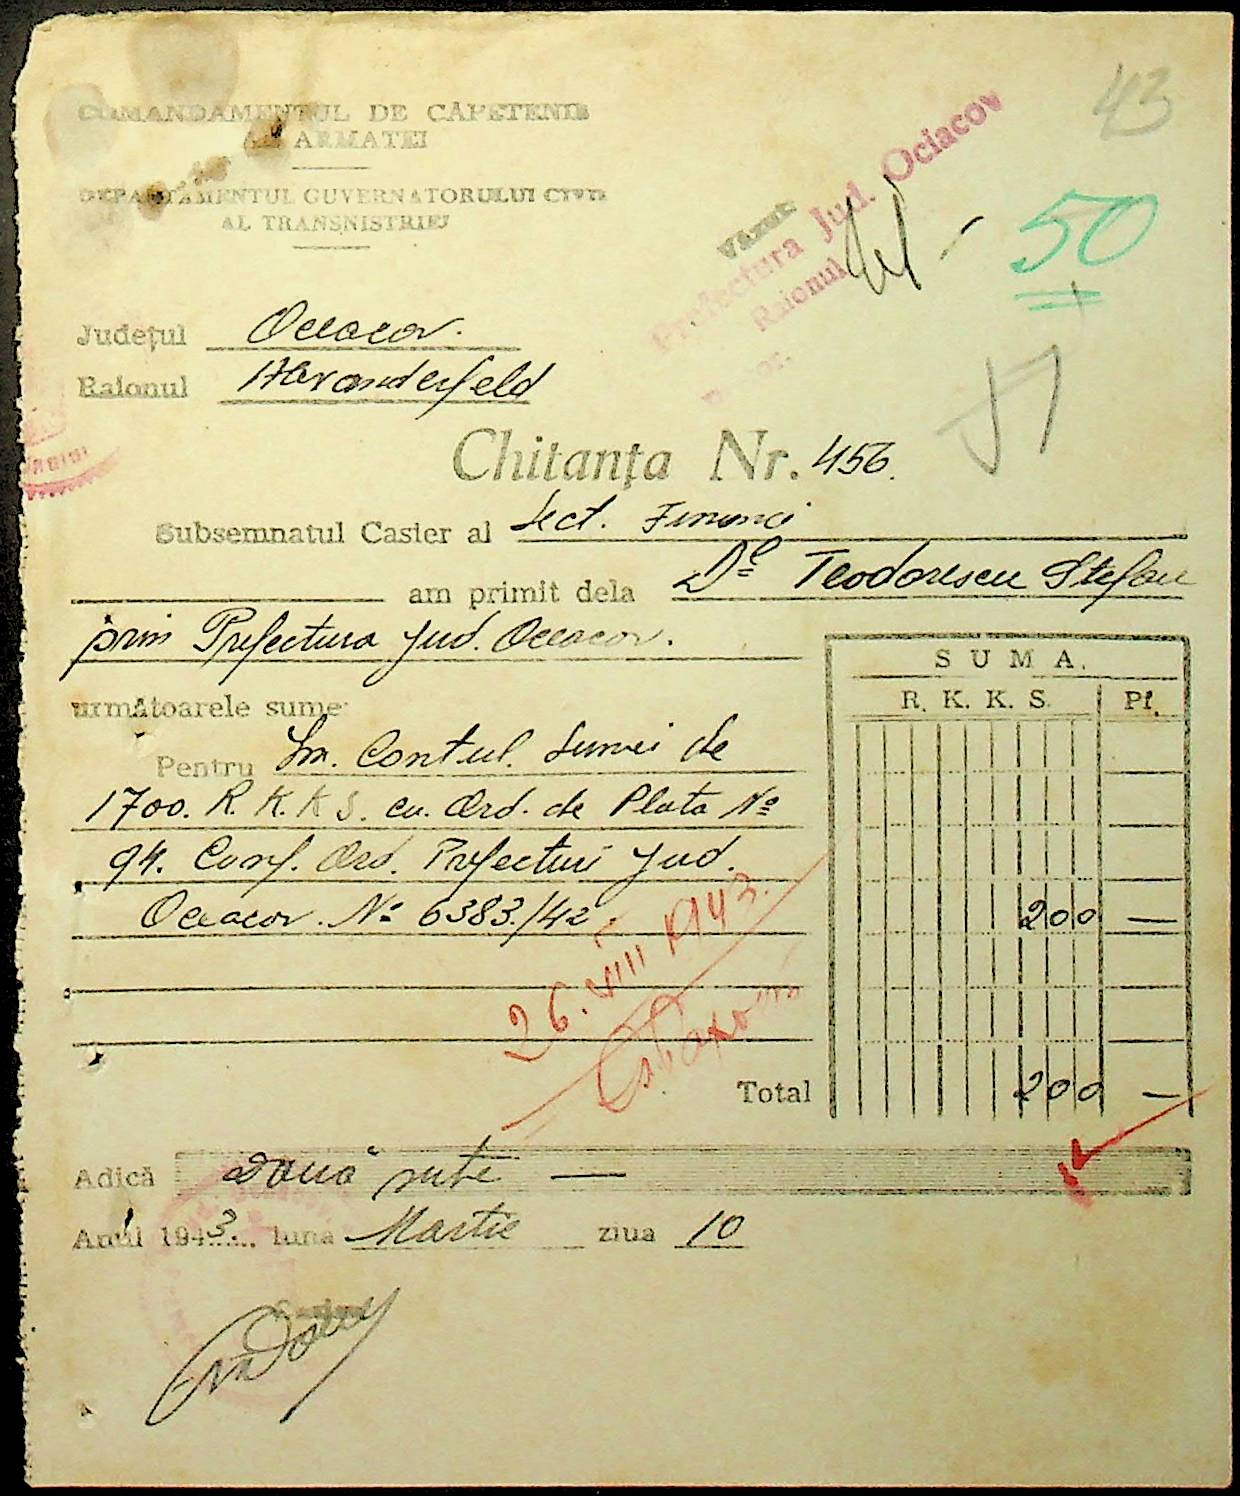 43
COMANDAMENTUL DE CĂPETENIE
AL ARMATEI
DEPARTAMENTUL GUVERNATORULUI CIVIL
AL TRANSNISTRIEI
Văzut
Prefectura Jud. Ociacov
Raionul
50
51
Județul Oceacov.
Raionul Alexanderfeld
Chitanţa Nr. 456.
Subsemnatul Casier al Sect. Financi
am primit dela Dl Teodorescu Stefan
prin Prefectura Jud. Oceacov.
următoarele sume
SUMA.
R. K. K. S. Pf.
Pentru In. Contul. Sumei de
1700. R. K. K S. cu. Ord. de Plata No
94. Conf. Ord. Prefecturi Jud.
Oceacov. No 6383./42. 200 —
26. VIII 1943.
Total 200 —
Adică Două sute —
Anul 1943. luna Martie ziua 10
Casier